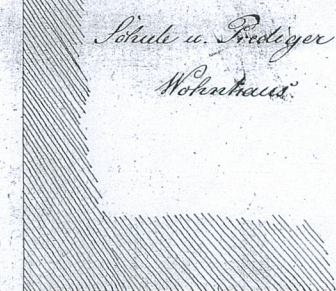 Schule u. Prediger
Wohnhaus.